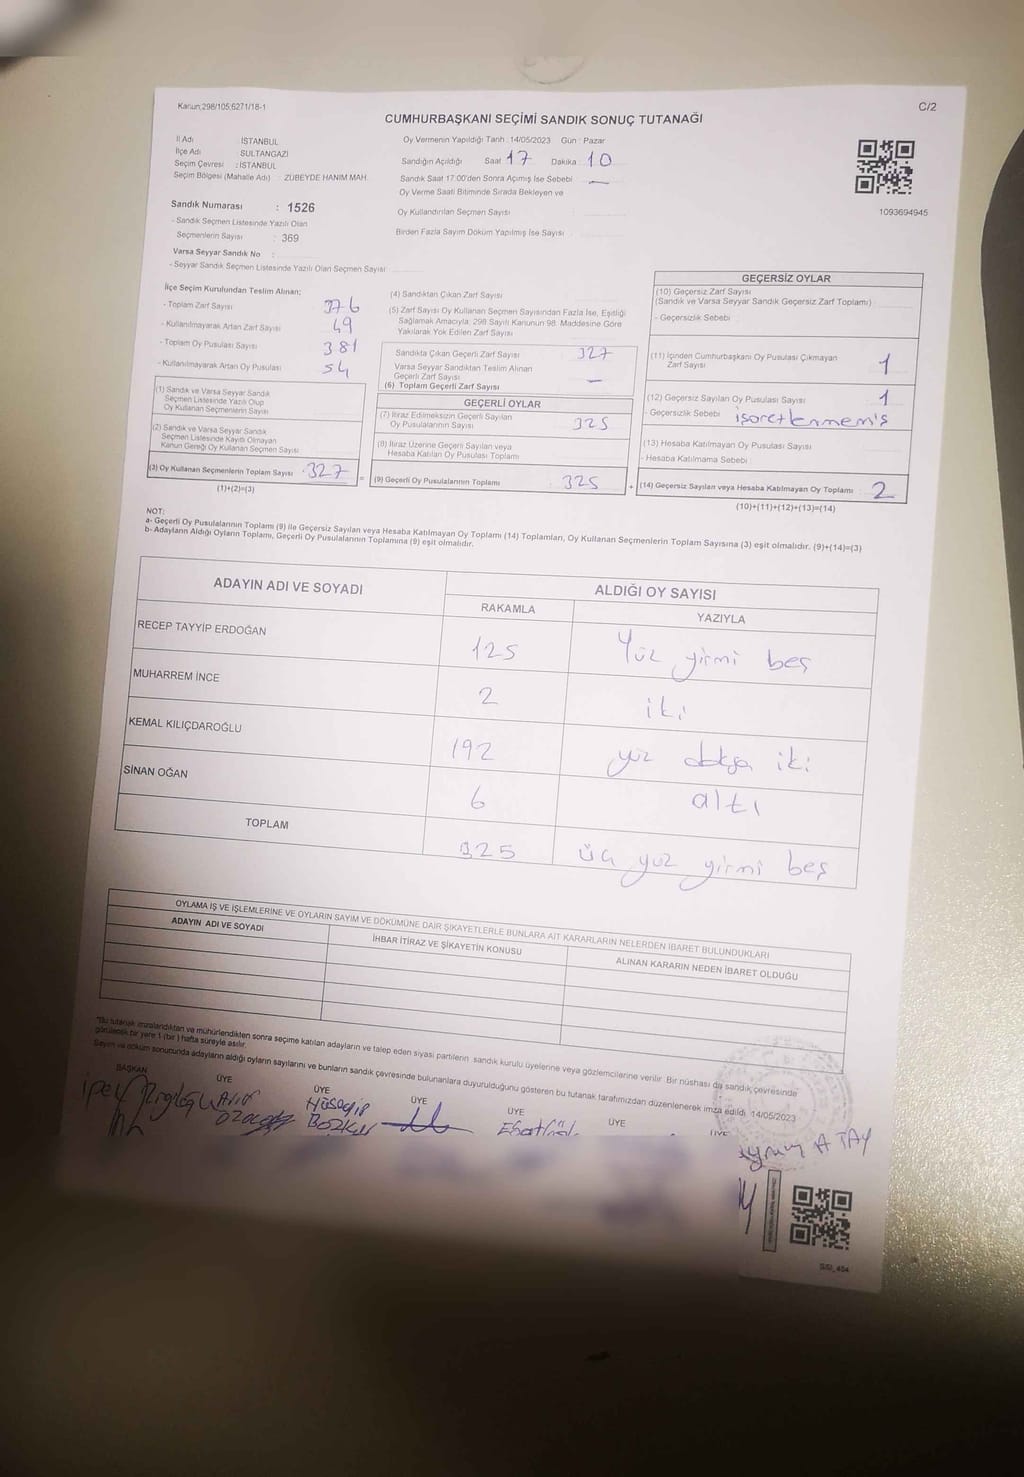 Kanun:298/105;6271/18-1
C/2
CUMHURBAŞKANI SEÇİMİ SANDIK SONUÇ TUTANAĞI
İl Adı İSTANBUL
İlçe Adı SULTANGAZİ
Seçim Çevresi : İSTANBUL
Seçim Bölgesi (Mahalle Adı) : ZÜBEYDE HANIM MAH.
Sandık Numarası : 1526
- Sandık Seçmen Listesinde Yazılı Olan
Seçmenlerin Sayısı : 369
Varsa Seyyar Sandık No :
- Seyyar Sandık Seçmen Listesinde Yazılı Olan Seçmen Sayısı
Oy Vermenin Yapıldığı Tarih : 14/05/2023 Gün : Pazar
Sandığın Açıldığı Saat 17 Dakika 10
Sandık Saat 17:00'den Sonra Açımış İse Sebebi —
Oy Verme Saati Bitiminde Sırada Bekleyen ve
Oy Kullandırılan Seçmen Sayısı
Birden Fazla Sayım Döküm Yapılmış İse Sayısı
1093694945
İlçe Seçim Kurulundan Teslim Alınan;
- Toplam Zarf Sayısı 376
- Kullanılmayarak Artan Zarf Sayısı 49
- Toplam Oy Pusulası Sayısı 381
- Kullanılmayarak Artan Oy Pusulası 54
(1) Sandık ve Varsa Seyyar Sandık
Seçmen Listesinde Yazılı Olup
Oy Kullanan Seçmenlerin Sayısı
(2) Sandık ve Varsa Seyyar Sandık
Seçmen Listesinde Kayıtlı Olmayan
Kanun Gereği Oy Kullanan Seçmen Sayısı
(3) Oy Kullanan Seçmenlerin Toplam Sayısı 327
(1)+(2)=(3)
(4) Sandıktan Çıkan Zarf Sayısı
(5) Zarf Sayısı Oy Kullanan Seçmen Sayısından Fazla İse, Eşitliği
Sağlamak Amacıyla; 298 Sayılı Kanunun 98. Maddesine Göre
Yakılarak Yok Edilen Zarf Sayısı
Sandıkta Çıkan Geçerli Zarf Sayısı 327
Varsa Seyyar Sandıktan Teslim Alınan
Geçerli Zarf Sayısı —
(6) Toplam Geçerli Zarf Sayısı
GEÇERLİ OYLAR
(7) İtiraz Edilmeksizin Geçerli Sayılan
Oy Pusulalarının Sayısı 325
(8) İtiraz Üzerine Geçerli Sayılan veya
Hesaba Katılan Oy Pusulası Toplamı
(9) Geçerli Oy Pusulalarının Toplamı 325
GEÇERSİZ OYLAR
(10) Geçersiz Zarf Sayısı
(Sandık ve Varsa Seyyar Sandık Geçersiz Zarf Toplamı)
- Geçersizlik Sebebi
(11) İçinden Cumhurbaşkanı Oy Pusulası Çıkmayan
Zarf Sayısı 1
(12) Geçersiz Sayılan Oy Pusulası Sayısı 1
- Geçersizlik Sebebi işaretlenmemiş
(13) Hesaba Katılmayan Oy Pusulası Sayısı
- Hesaba Katılmama Sebebi
(14) Geçersiz Sayılan veya Hesaba Katılmayan Oy Toplamı 2
(10)+(11)+(12)+(13)=(14)
NOT:
a- Geçerli Oy Pusulalarının Toplamı (9) ile Geçersiz Sayılan veya Hesaba Katılmayan Oy Toplamı (14) Toplamları, Oy Kullanan Seçmenlerin Toplam Sayısına (3) eşit olmalıdır. (9)+(14)=(3)
b- Adayların Aldığı Oyların Toplamı, Geçerli Oy Pusulalarının Toplamına (9) eşit olmalıdır.
ADAYIN ADI VE SOYADI ALDIĞI OY SAYISI
RAKAMLA YAZIYLA
RECEP TAYYİP ERDOĞAN 125 Yüz yirmi beş
MUHARREM İNCE 2 iki
KEMAL KILIÇDAROĞLU 192 yüz doksan iki
SİNAN OĞAN 6 altı
TOPLAM 325 üç yüz yirmi beş
OYLAMA İŞ VE İŞLEMLERİNE VE OYLARIN SAYIM VE DÖKÜMÜNE DAİR ŞİKAYETLERLE BUNLARA AİT KARARLARIN NELERDEN İBARET BULUNDUKLARI
ADAYIN ADI VE SOYADI İHBAR İTİRAZ VE ŞİKAYETİN KONUSU ALINAN KARARIN NEDEN İBARET OLDUĞU
*Bu tutanak imzalandıktan ve mühürlendikten sonra seçime katılan adayların ve talep eden siyasi partilerin sandık kurulu üyelerine veya gözlemcilerine verilir. Bir nüshası da sandık çevresinde
görülecek bir yere 1 (bir) hafta süreyle asılır.
Sayım ve döküm sonucunda adayların aldığı oyların sayılarını ve bunların sandık çevresinde bulunanlara duyurulduğunu gösteren bu tutanak tarafımızdan düzenlenerek imza edildi. 14/05/2023
BAŞKAN ÜYE ÜYE ÜYE ÜYE ÜYE ÜYE
ipek Hüseyin
ATAY